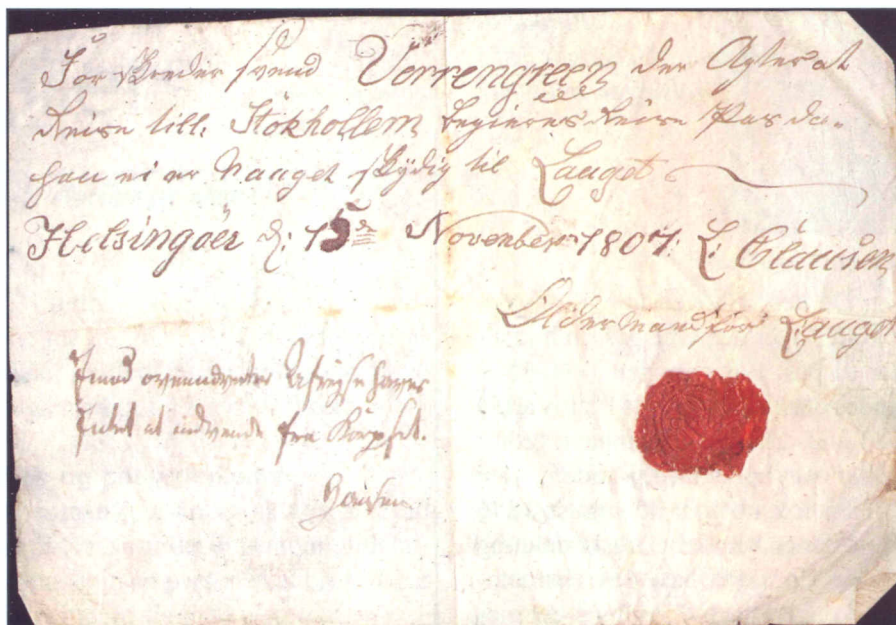 For skreder svend Vörrengreen der Agter at
Reise till: Stökhollem begieres Reise Pas da-
han ei er Nauget skÿdig til Lauget
Helsingöer d: 15de November 1807: L: Clausen
Oldermand for Lauget
Imod ovenanførte Afreyse haver
Intet at indvende fra Korpset.